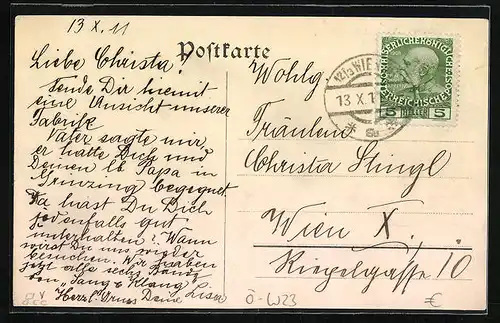 13 X. 11
Postkarte
Liebe Christa!
Sende Dir hiemit
eine Ansicht unserer
Fabrik
Vater sagte mir
er hatte Dich und
Deinen lb Papa in
Grinzing begegnet
Da hast Du Dich
jedenfalls gut
unterhalten? Wann
wirst Du uns wieder
besuchen. Wir haben
jetzt alle sechs Bände
von "Sang & Klang"
Herzl. Gruss Deine Lisa
Wohlg.
Fräulein
Christa Stingl
Wien X.
Riegelgasse 10
12/3 WIEN
13 X. 1
5 HELLER 5
Ö-W23
€